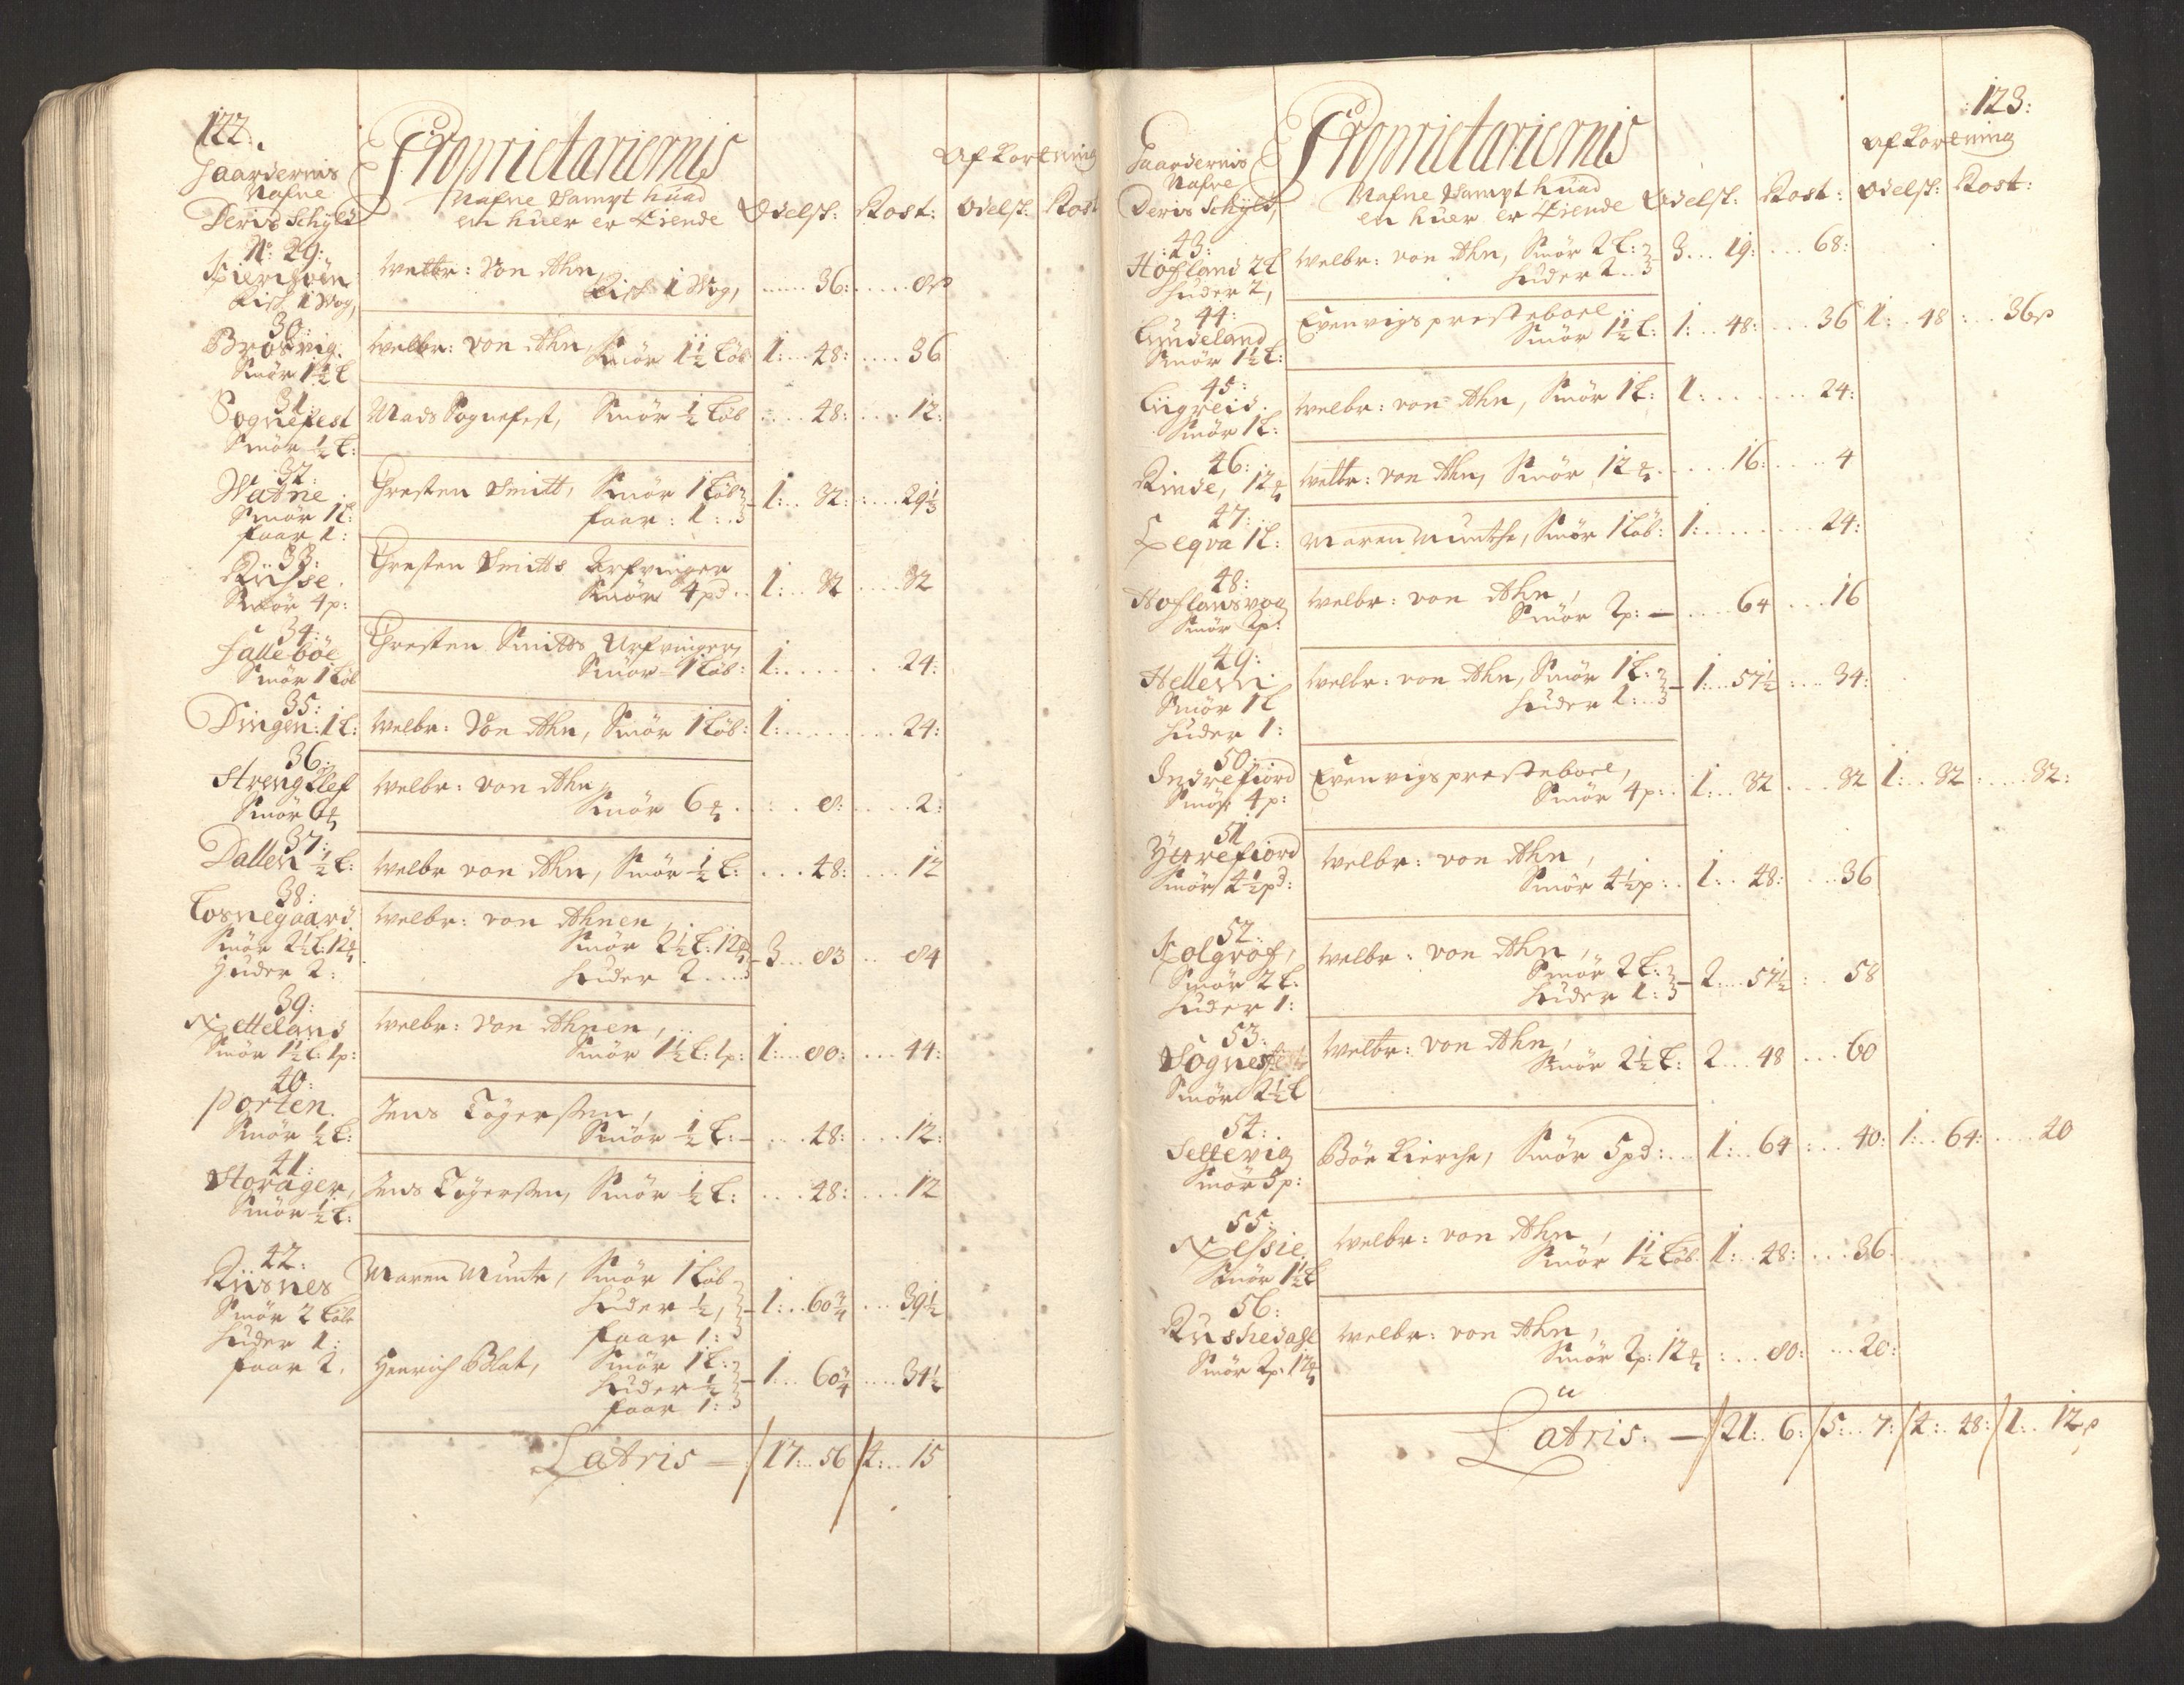 122.
Gaardernis
Nafne
Deris Schyld
Proprietariernis
Nafne Sampt huad
en huer er Eiende
Odelsk: Rost:
Afkortning
Odelsk: Rost
No: 29:
Fisk 1 Wog,
Welbr: Von Ahn,
Fisk 1 Wog, ...... 36: ..... 8 s
30:
Brosvig.
Smör 1½ L
Welbr: von Ahn,
Smör 1½ Löb 1: .. 48: .... 36
31:
Sognefest
Smör ½ L:
Mads Sognefest, Smör ½ Löb .... 48: ... 12:
32:
Watne.
Smör 1 L:
faar 1:
Chresten Smitt, Smör 1 Löb
faar: 1: 1: .. 32: .... 29⅓
33:
Russe.
Smör 4 p:
Chresten Smitts Arfvinger
Smör 4 pd .. 1: .. 32 .... 32
34:
Halleböe
Smör 1 Löb
Chresten Smitts Arfvinger
Smör 1 Löb: 1: ....... 24:
35:
Dingen: 1 L:
Welbr: Von Ahn, Smör 1 Löb: 1: ....... 24:
36:
Strengklef
Smör 6
Welbr: von Ahn,
Smör 6 . ... 8: .... 2:
37:
Dallen ½ L:
Welbr von Ahn, Smör ½ L: ... 48: ... 12
38:
Losnegaard.
Smör 2½ L: 12
Huder 2:
Welbr: von Ahnen,
Smör 2½ L: 12
Huder 2 .... 3 ... 83 .. 84
39:
Smör 1½ L: 1 p:
Welbr: Von Ahnen,
Smör 1½ L: 1 p: 1: ... 80: ... 44:
40:
Porten.
Smör ½ L:
Jens Tögersen,
Smör ½ L: ... 48: ... 12:
41:
Storager,
Smör ½ L:
Jens Tögersen, Smör ½ L: ... 48: ... 12
42:
Risnes
Smör 2 Löb
Huder 1:
faar 2.
Maren Munte, Smör 1 Löb
Huder ½, 1: .. 60¾ ... 39½
faar 1:
Henrich Blat, Smör 1 L:
Huder ½ 1 ... 60¾ .... 34½
faar 1:
Latris — 17: .. 56 4: .. 15
123:
Gaardernis
Nafne
Deris Schyld,
Proprietariernis
Nafne Sampt huad
en huer er Eiende
Odelsk: Rost:
Afkortning
Odelsk: Rost:
43:
Hofland 2 L
Huder 2,
Welbr: von Ahn, Smör 2 L:
Huder 2 .. 3 ... 19: ... 68:
44:
Lundeland
Smör 1½ L:
Evenvigs presteboel
Smör 1½ L: 1: .. 48: ... 36 1: .. 48 ... 36 s
45:
Liigreid.
Smör 1 L:
Welbr: von Ahn, Smör 1 L: 1: ...... 24:
46:
Rinde, 12
Welbr: von Ahn, Smör 12 .... 16: .... 4
47:
1 L:
Maren Munthe, Smör 1 Löb: 1: ...... 24:
48:
Hoflandsvog
Smör 2 p:
Welbr: von Ahn,
Smör 2 p: — .... 64 ... 16
49:
Smör 1 L
Huder 1:
Welbr: von Ahn, Smör 1 L:
Huder 1: .. 1: .. 57½ ... 34:
50:
Indrefiord
Smör 4 p:
Evenvigs presteboel,
Smör 4 p: . 1: .. 32 ... 32 1: .. 32 ..... 32:
51
Yttrefiord
Smör 4½ pd:
Welbr: von Ahn,
Smör 4½ p: . 1: .. 48: ... 36
52:
Kolgrof,
Smör 2 L:
Huder 1:
Welbr: von Ahn,
Smör 2 L:
Huder 1: 2 ... 57½ : .. 58
53:
Sognefest
Smör 2½ L
Welbr: von Ahn,
Smör 2½ L: 2 ... 48 ... 60
54:
Sellevig
Smör 5 p:
Böe Kierche, Smör 5 pd: .. 1: .. 64 ... 40: 1: .. 64: .... 20
55:
Smör 1½ L
Welbr: von Ahn,
Smör 1½ Löb. 1: .. 48: ... 36.
56:
Smör 2 p. 12
Welbr: von Ahn,
Smör 2 p: 12 : ... 80: ... 20:
Latris: — 21: . 6: 5: .. 7: 4: . 48: 1: .. 12 s